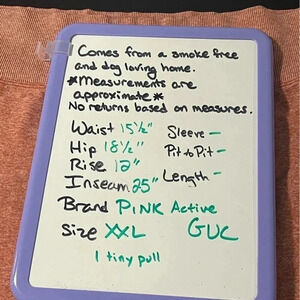 Comes from a smoke free
and dog loving home.
*Measurements are
approximate*
No returns based on measures.
Waist 15½" Sleeve -
Hip 18½" Pit to Pit -
Rise 12" Length -
Inseam 25"
Brand PINK Active
Size XXL GUC
1 tiny pull